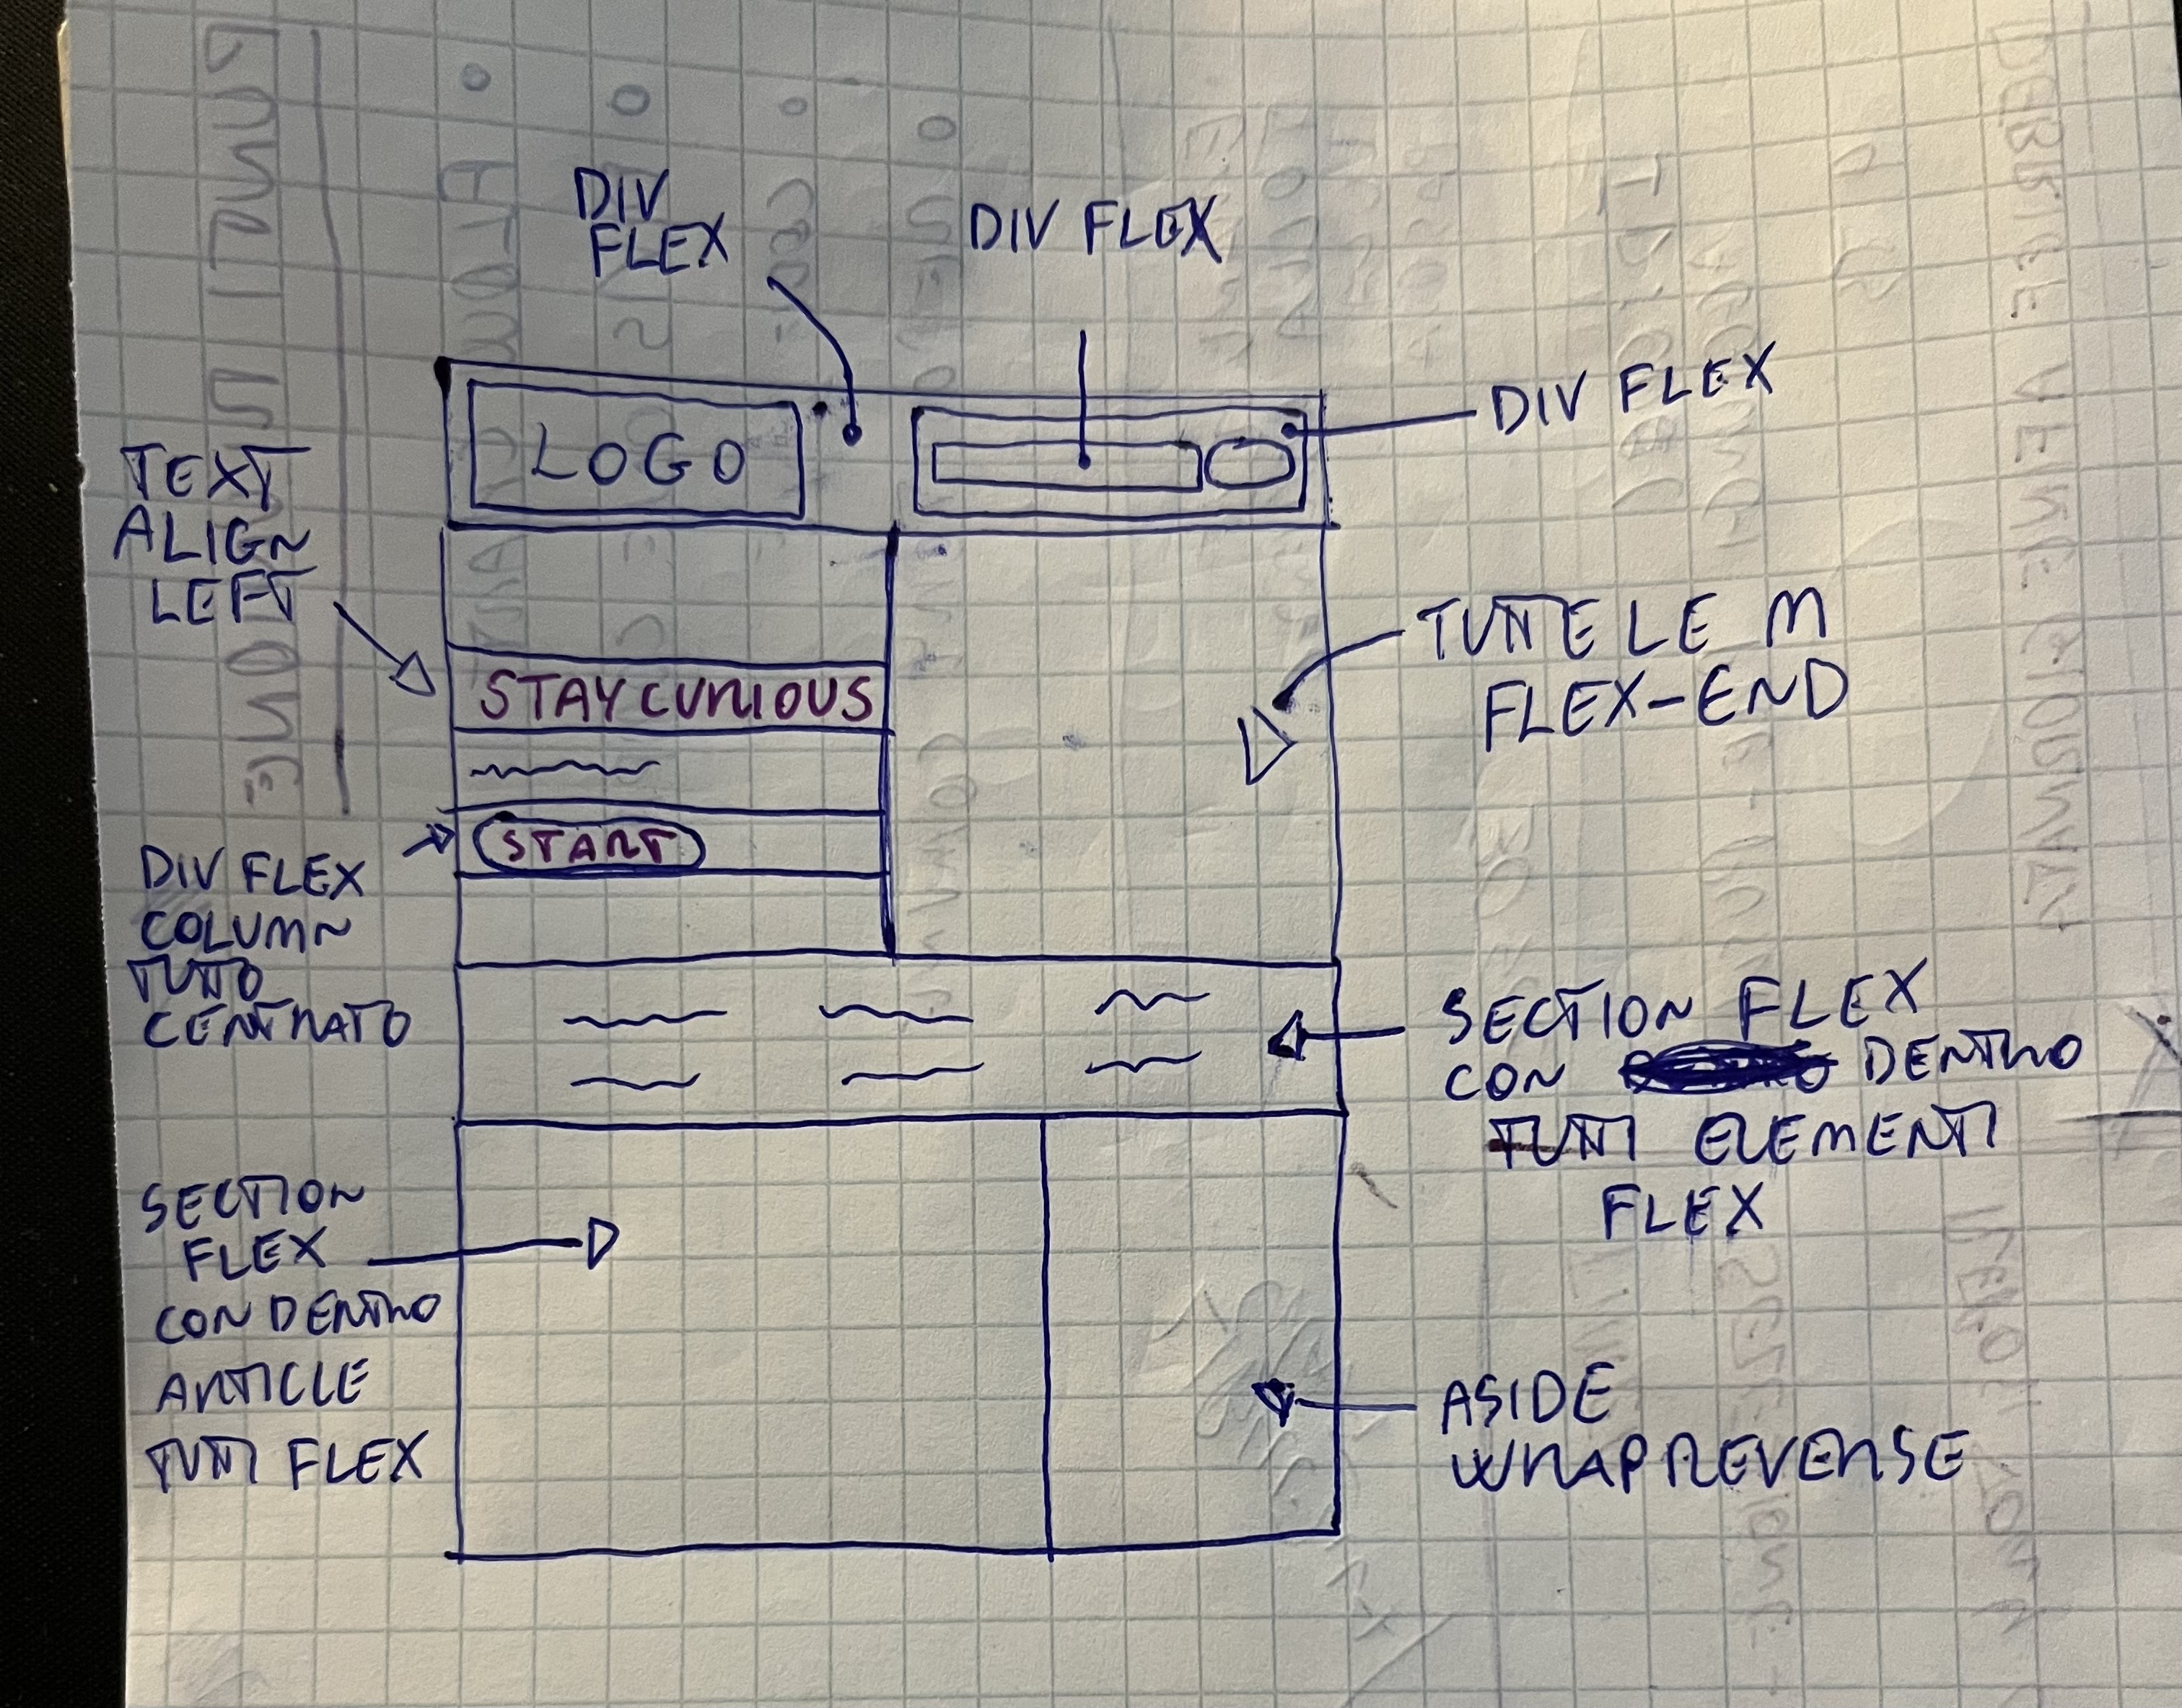 DIV
FLEX
DIV FLEX
DIV FLEX
LOGO
TEXT
ALIGN
LEFT
STAY CURIOUS
START
TUTTE LE M
FLEX-END
DIV FLEX
COLUMN
TUTTO
CENTRATO
SECTION FLEX
CON DENTRO
TUTTI ELEMENTI
FLEX
SECTION
FLEX
CON DENTRO
ARTICLE
TUTTI FLEX
ASIDE
WRAP REVERSE